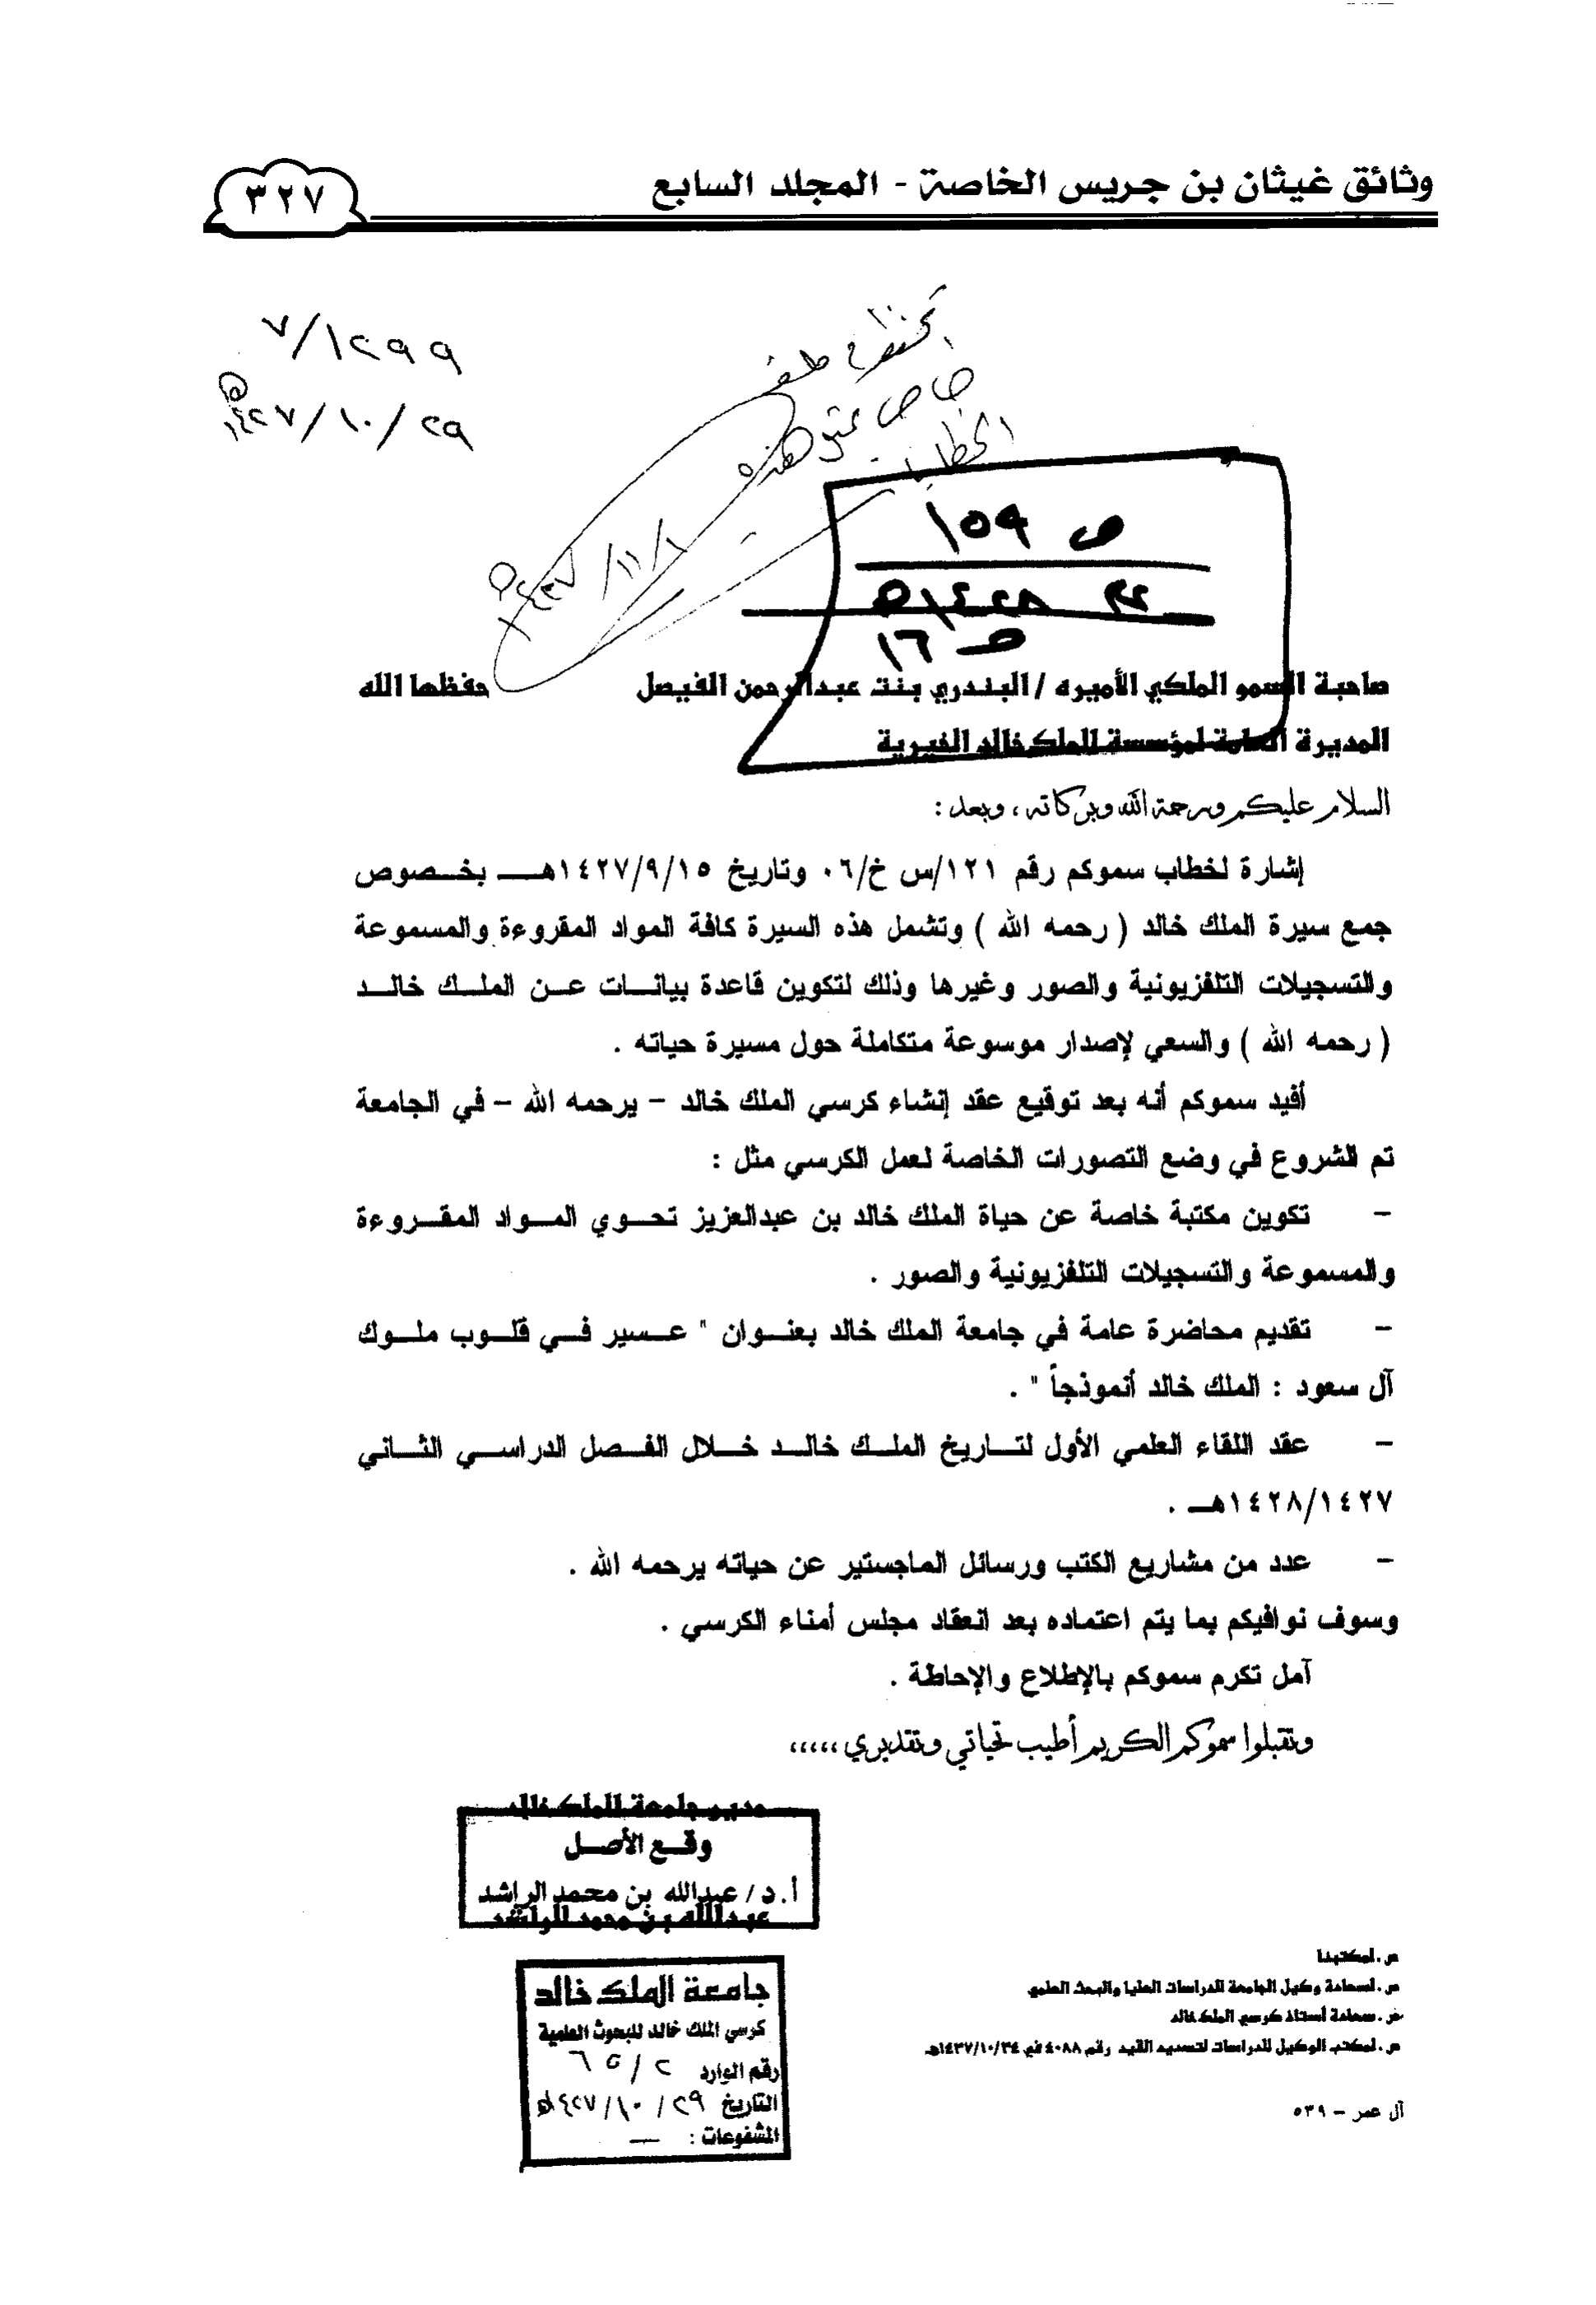 وثائق غيثان بن جريس الخاصة - المجلد السابع
٣٢٧
٧/١٢٩٩
١٤٢٧/١٠/٢٩هـ
خاص بمثل هذه
الخطابات
١٤٢٧/١١/١هـ
ص ١٥٩
١٤٢٨هـ
ص ١٦
صاحبة السمو الملكي الأميرة / البندري بنت عبدالرحمن الفيصل حفظها الله
المديرة العامة لمؤسسة الملك خالد الخيرية
السلام عليكم ورحمة الله وبركاته ، وبعد :
إشارة لخطاب سموكم رقم ١٢١/س خ/٠٦ وتاريخ ١٤٢٧/٩/١٥هـ بخصوص
جمع سيرة الملك خالد ( رحمه الله ) وتشمل هذه السيرة كافة المواد المقروءة والمسموعة
والتسجيلات التلفزيونية والصور وغيرها وذلك لتكوين قاعدة بيانات عن الملك خالد
( رحمه الله ) والسعي لإصدار موسوعة متكاملة حول مسيرة حياته .
أفيد سموكم أنه بعد توقيع عقد إنشاء كرسي الملك خالد – يرحمه الله – في الجامعة
تم الشروع في وضع التصورات الخاصة لعمل الكرسي مثل :
– تكوين مكتبة خاصة عن حياة الملك خالد بن عبدالعزيز تحوي المواد المقروءة
والمسموعة والتسجيلات التلفزيونية والصور .
– تقديم محاضرة عامة في جامعة الملك خالد بعنوان " عسير في قلوب ملوك
آل سعود : الملك خالد أنموذجاً " .
– عقد اللقاء العلمي الأول لتاريخ الملك خالد خلال الفصل الدراسي الثاني
١٤٢٨/١٤٢٧هـ .
– عدد من مشاريع الكتب ورسائل الماجستير عن حياته يرحمه الله .
وسوف نوافيكم بما يتم اعتماده بعد انعقاد مجلس أمناء الكرسي .
آمل تكرم سموكم بالإطلاع والإحاطة .
وتقبلوا سموكم الكريم أطيب تحياتي وتقديري ،،،،،
مدير جامعة الملك خالد
وقع الأصل
أ.د / عبدالله بن محمد الراشد
عبدالله بن محمد الراشد
ص . لمكتبنا
ص . لسعادة وكيل الجامعة للدراسات العليا والبحث العلمي
ص . سعادة أستاذ كرسي الملك خالد
ص . لمكتب الوكيل للدراسات لتسديد القيد رقم ٤٠٨٨ في ١٤٢٧/١٠/٢٤هـ
آل عمر – ٥٣٩
جامعة الملك خالد
كرسي الملك خالد للبحوث العلمية
رقم الوارد ٦٥/٢
التاريخ ١٤٢٧/١٠/٢٩هـ
المشفوعات : —